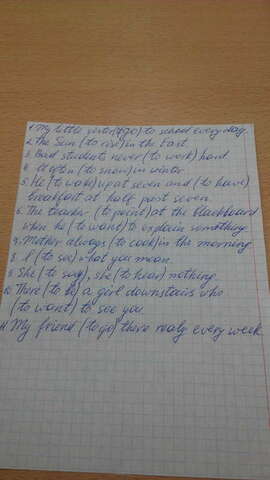 1. My little sister (to go) to school every day.
2. The Sun (to rise) in the East.
3. Bad students never (to work) hard.
4. It often (to snow) in winter.
5. He (to wake) up at seven and (to have)
breakfast at half past seven.
6. The teacher (to point) at the blackboard
when he (to want) to explain something.
7. Mother always (to cook) in the morning.
8. I (to see) what you mean.
9. She (to say), she (to hear) nothing.
10. There (to be) a girl downstairs who
(to want) to see you.
11. My friend (to go) there every week.